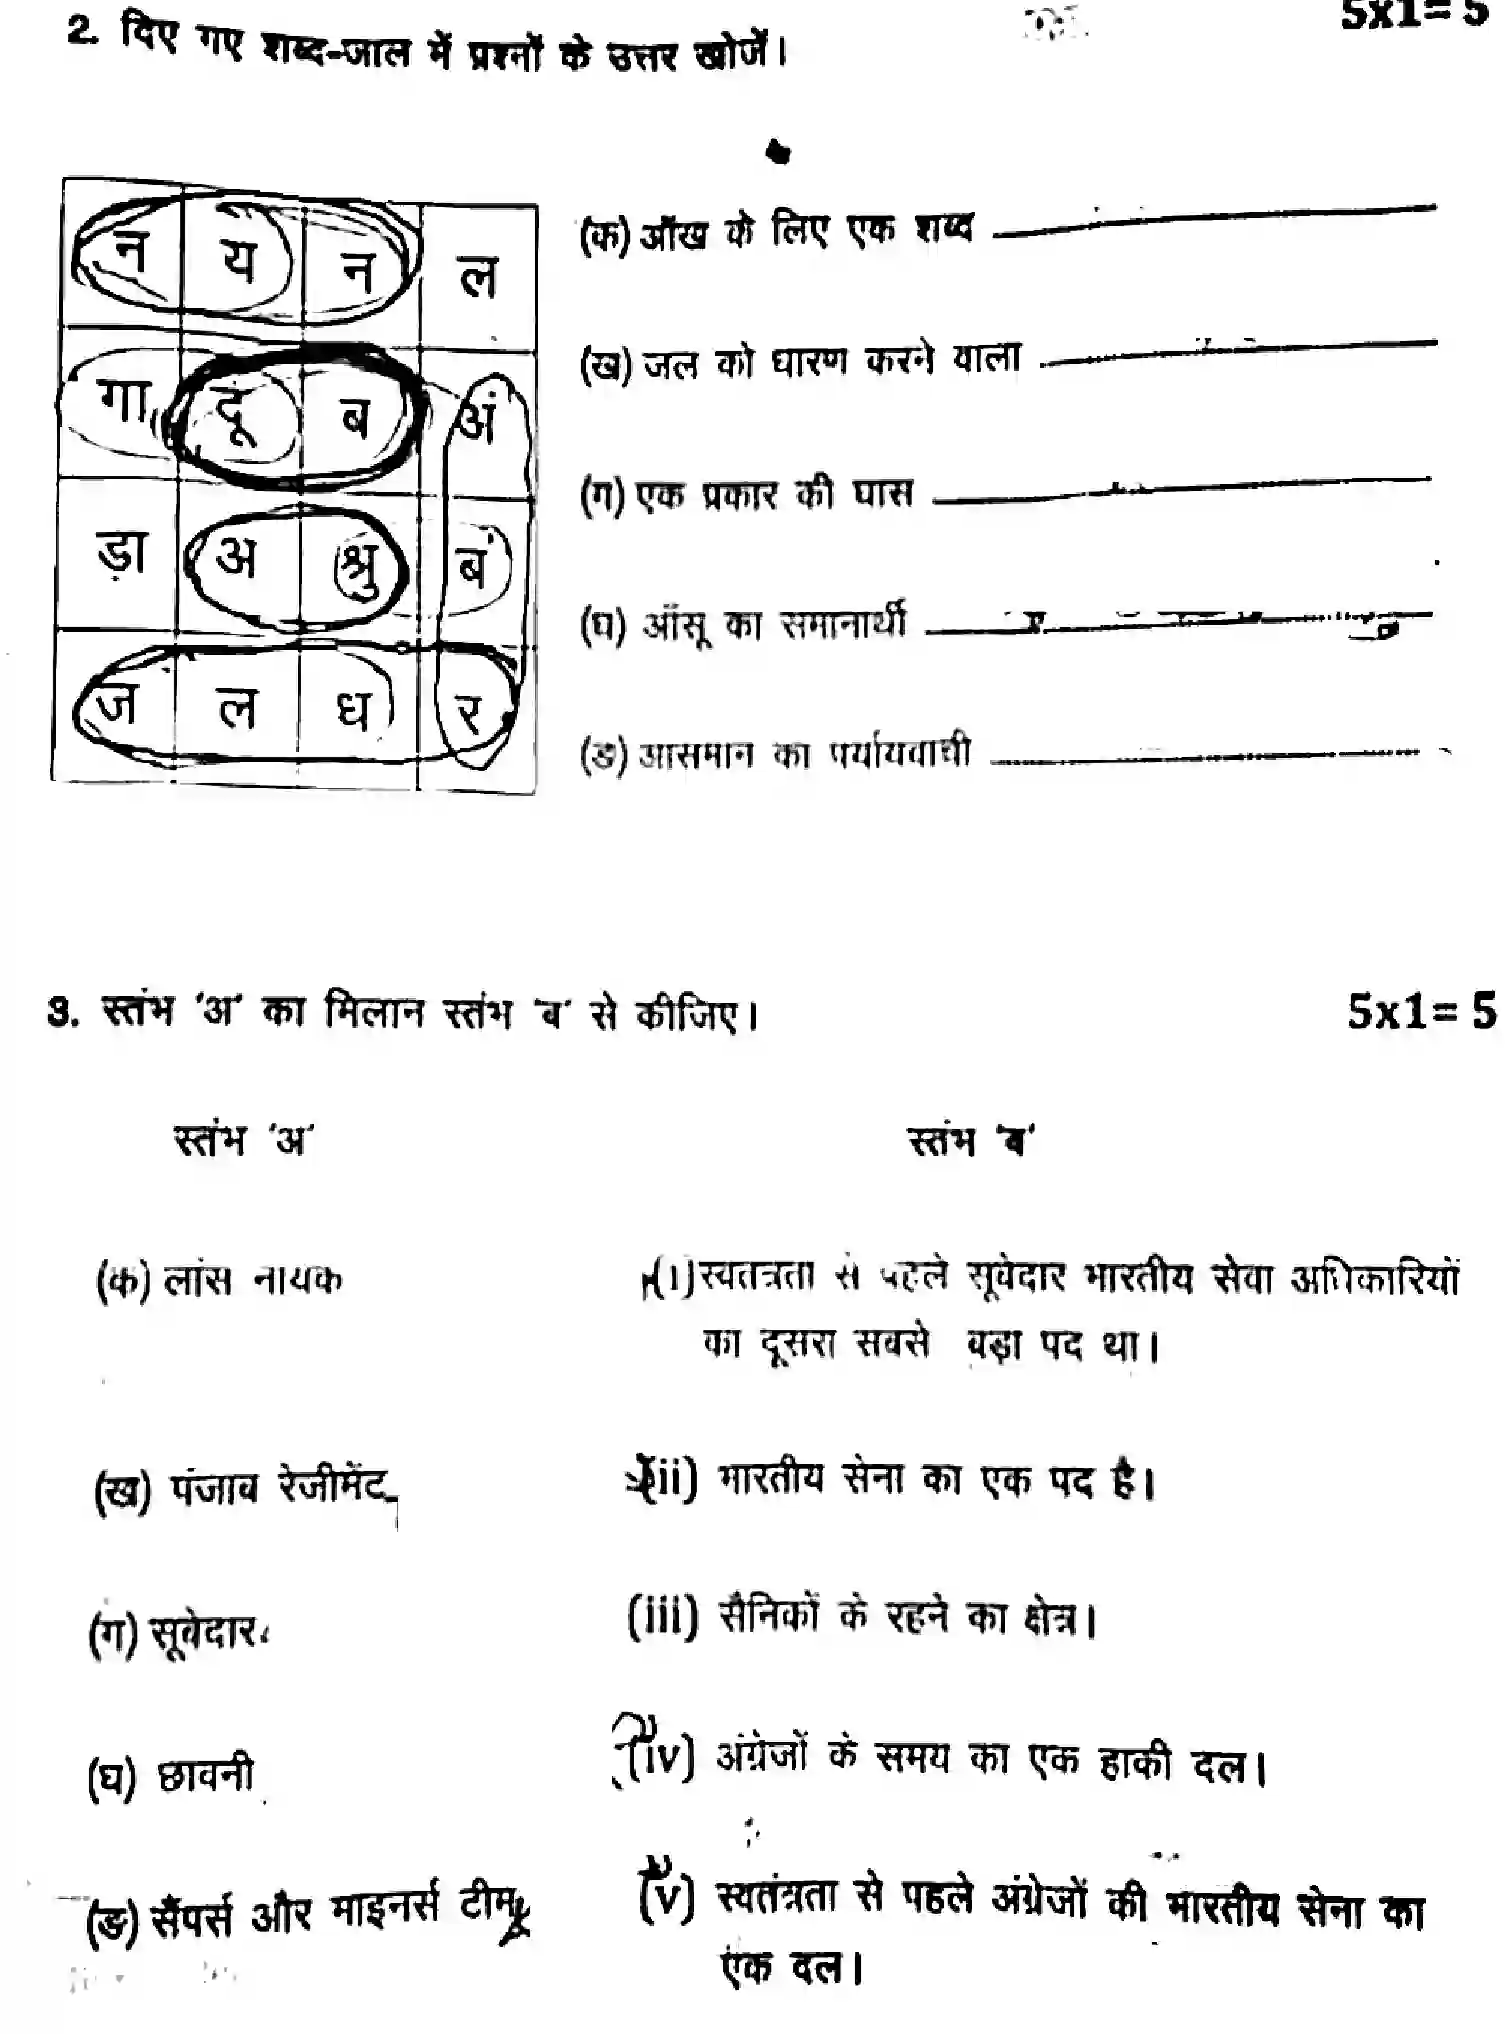 2. दिए गए शब्द-जाल में प्रश्नों के उत्तर खोजें।
5x1= 5
न य न ल
गा दू ब अं
ड़ा अ श्रु बं
ज ल ध र
(क) आँख के लिए एक शब्द
(ख) जल को धारण करने वाला
(ग) एक प्रकार की घास
(घ) आँसू का समानार्थी
(ङ) आसमान का पर्यायवाची
3. स्तंभ 'अ' का मिलान स्तंभ 'ब' से कीजिए।
5x1= 5
स्तंभ 'अ'
स्तंभ 'ब'
(क) लांस नायक
(i) स्वतंत्रता से पहले सूबेदार भारतीय सेवा अधिकारियों
का दूसरा सबसे बड़ा पद था।
(ख) पंजाब रेजीमेंट
(ii) भारतीय सेना का एक पद है।
(ग) सूबेदार
(iii) सैनिकों के रहने का क्षेत्र।
(घ) छावनी
(iv) अंग्रेजों के समय का एक हाकी दल।
(ङ) सैंपर्स और माइनर्स टीम
(v) स्वतंत्रता से पहले अंग्रेजों की भारतीय सेना का
एक दल।